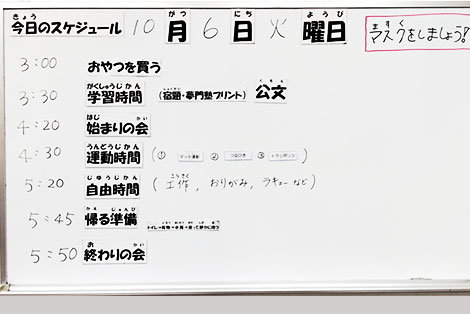 今日のスケジュール 10月6日火曜日
マスクをしましょう!
3:00 おやつを買う
3:30 学習時間 (宿題・夢門塾プリント) 公文
4:20 始まりの会
4:30 運動時間 (① マット運動 ② つなひき ③ トランポリン)
5:20 自由時間 (工作, おりがみ, ラキューなど)
5:45 帰る準備
5:50 終わりの会